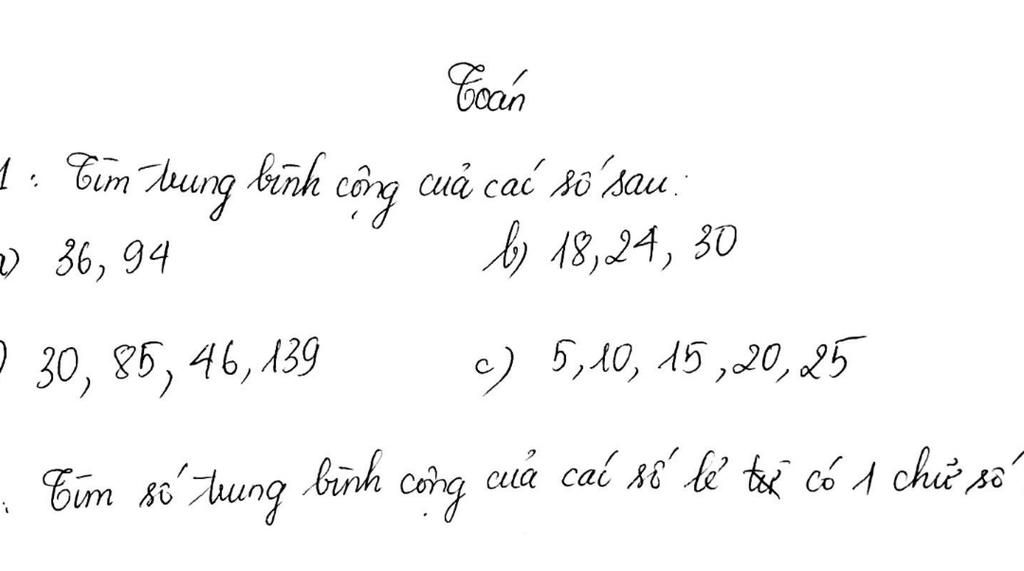 Toán
1 : Tìm trung bình cộng của các số sau:
) 36, 94 b) 18, 24, 30
) 30, 85, 46, 139 c) 5, 10, 15, 20, 25
: Tìm số trung bình cộng của các số lẻ có 1 chữ số